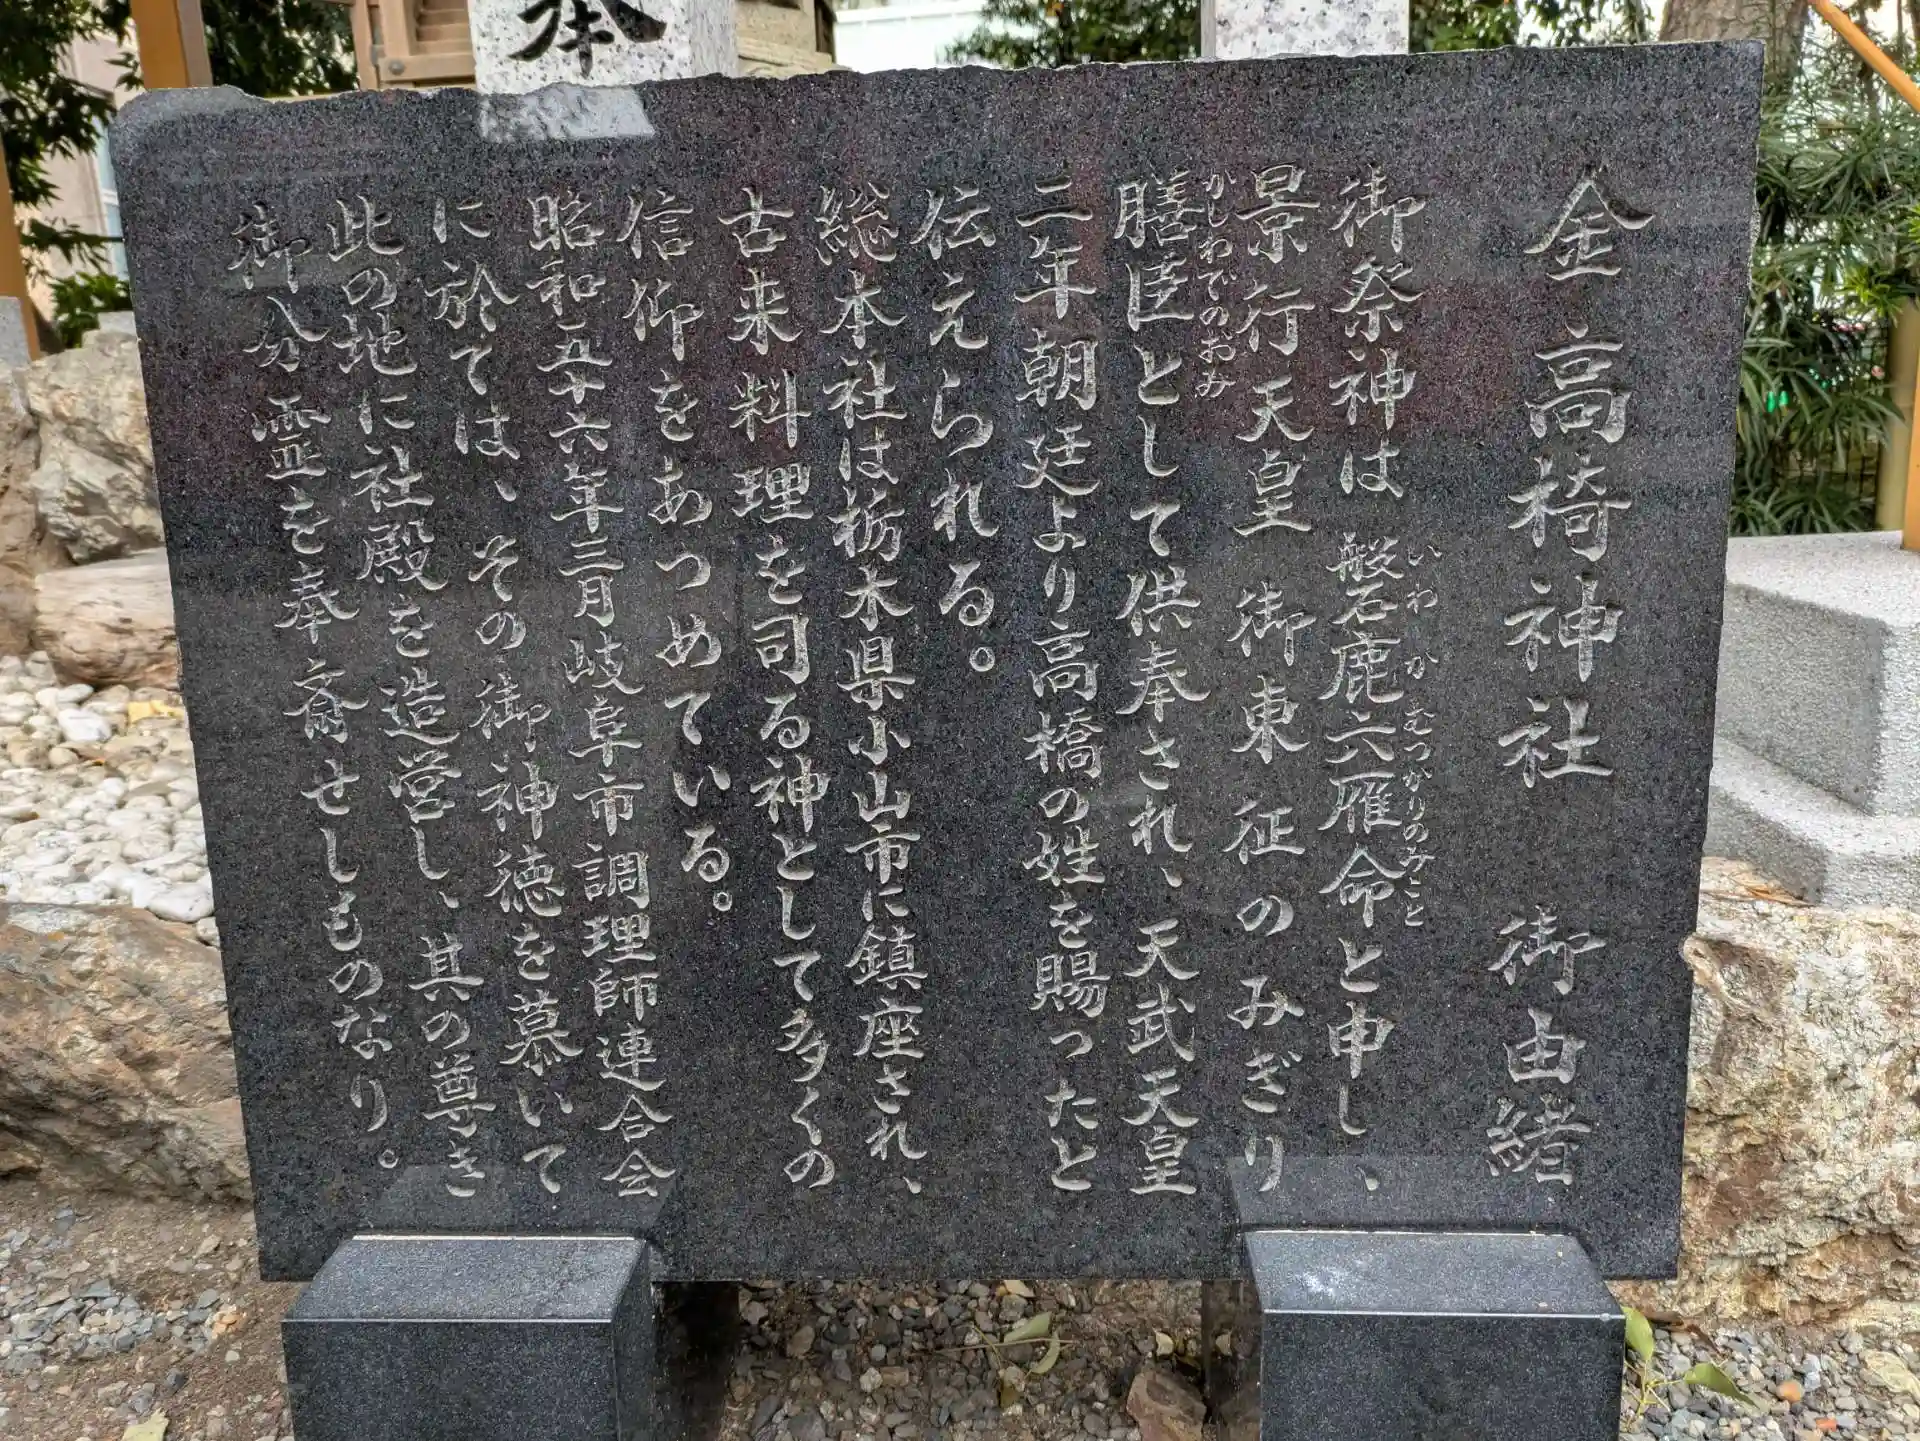 金高椅神社　御由緒
御祭神は　磐鹿六雁命と申し、
いわかむつかりのみこと
景行天皇　御東征のみぎり
膳臣として供奉され、天武天皇
かしわでのおみ
二年朝廷より高橋の姓を賜ったと
伝えられる。
総本社は栃木県小山市に鎮座され、
古来料理を司る神として多くの
信仰をあつめている。
昭和五十六年三月岐阜市調理師連合会
に於ては、その御神徳を慕いて
此の地に社殿を造営し、其の尊き
御分霊を奉斎せしものなり。
奉